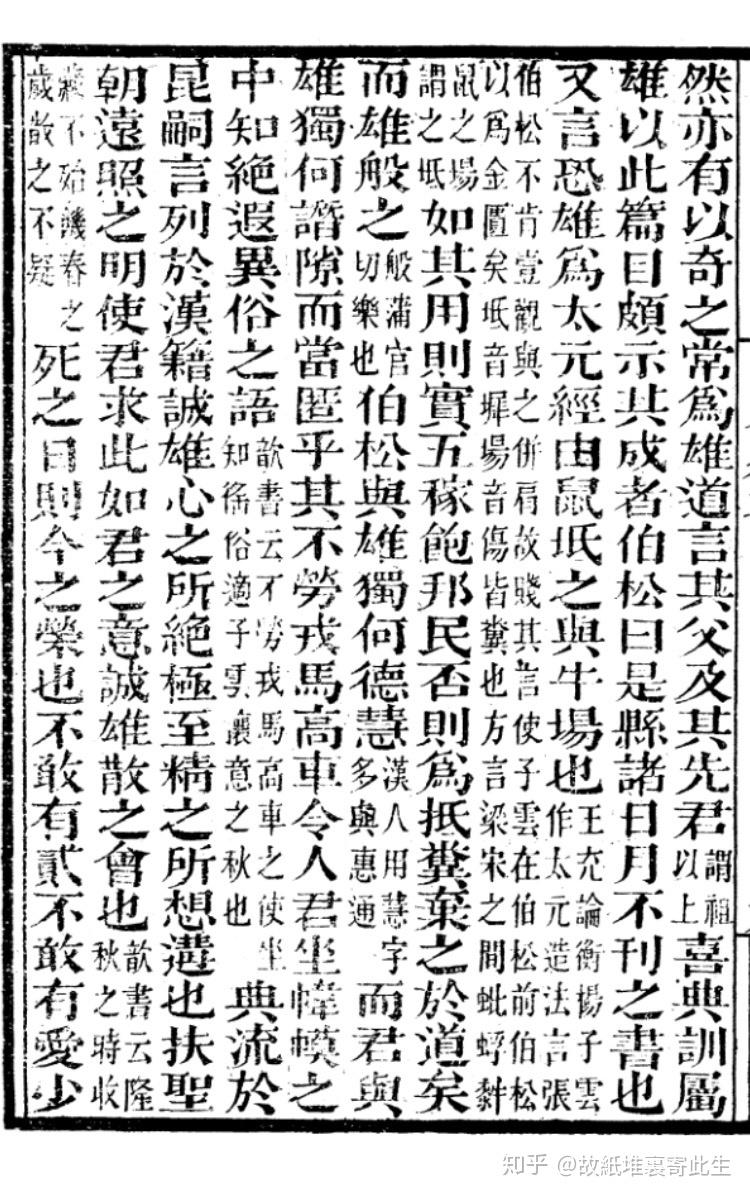 然亦有以奇之常爲雄道言其父及其先君謂祖以上喜典訓屬
雄以此篇目頗示其成者伯松曰是縣諸日月不刊之書也
又言恐雄爲太元經由鼠坻之與牛場也王充論衡揚子雲作太元造法言張
伯松不肯壹觀與之併肩故賤其言使子雲在伯松前伯松以爲金匱矣坻音墀場音傷皆糞也方言梁宋之間蚍蜉
鼠之場謂之坻如其用則實五稼飽邦民否則爲抵糞棄之於道矣
而雄般之般蒲官切樂也伯松與雄獨何德慧漢人用慧字多與惠通而君與
雄獨何譖隙而當匿乎其不勞戎馬高車令人君坐幃幙之
中知絕遐異俗之語歆書云不勞戎馬高車之使坐知徭俗適子雲攘意之秋也典流於
昆嗣言列於漢籍誠雄心之所絕極至精之所想遘也扶聖
朝遠照之明使君求此如君之意誠雄散之會也歆書云隆秋之時收
藏不殆饑春之歲散之不疑死之日則今之榮也不敢有貳不敢有愛少
知乎 @故紙堆裏寄此生